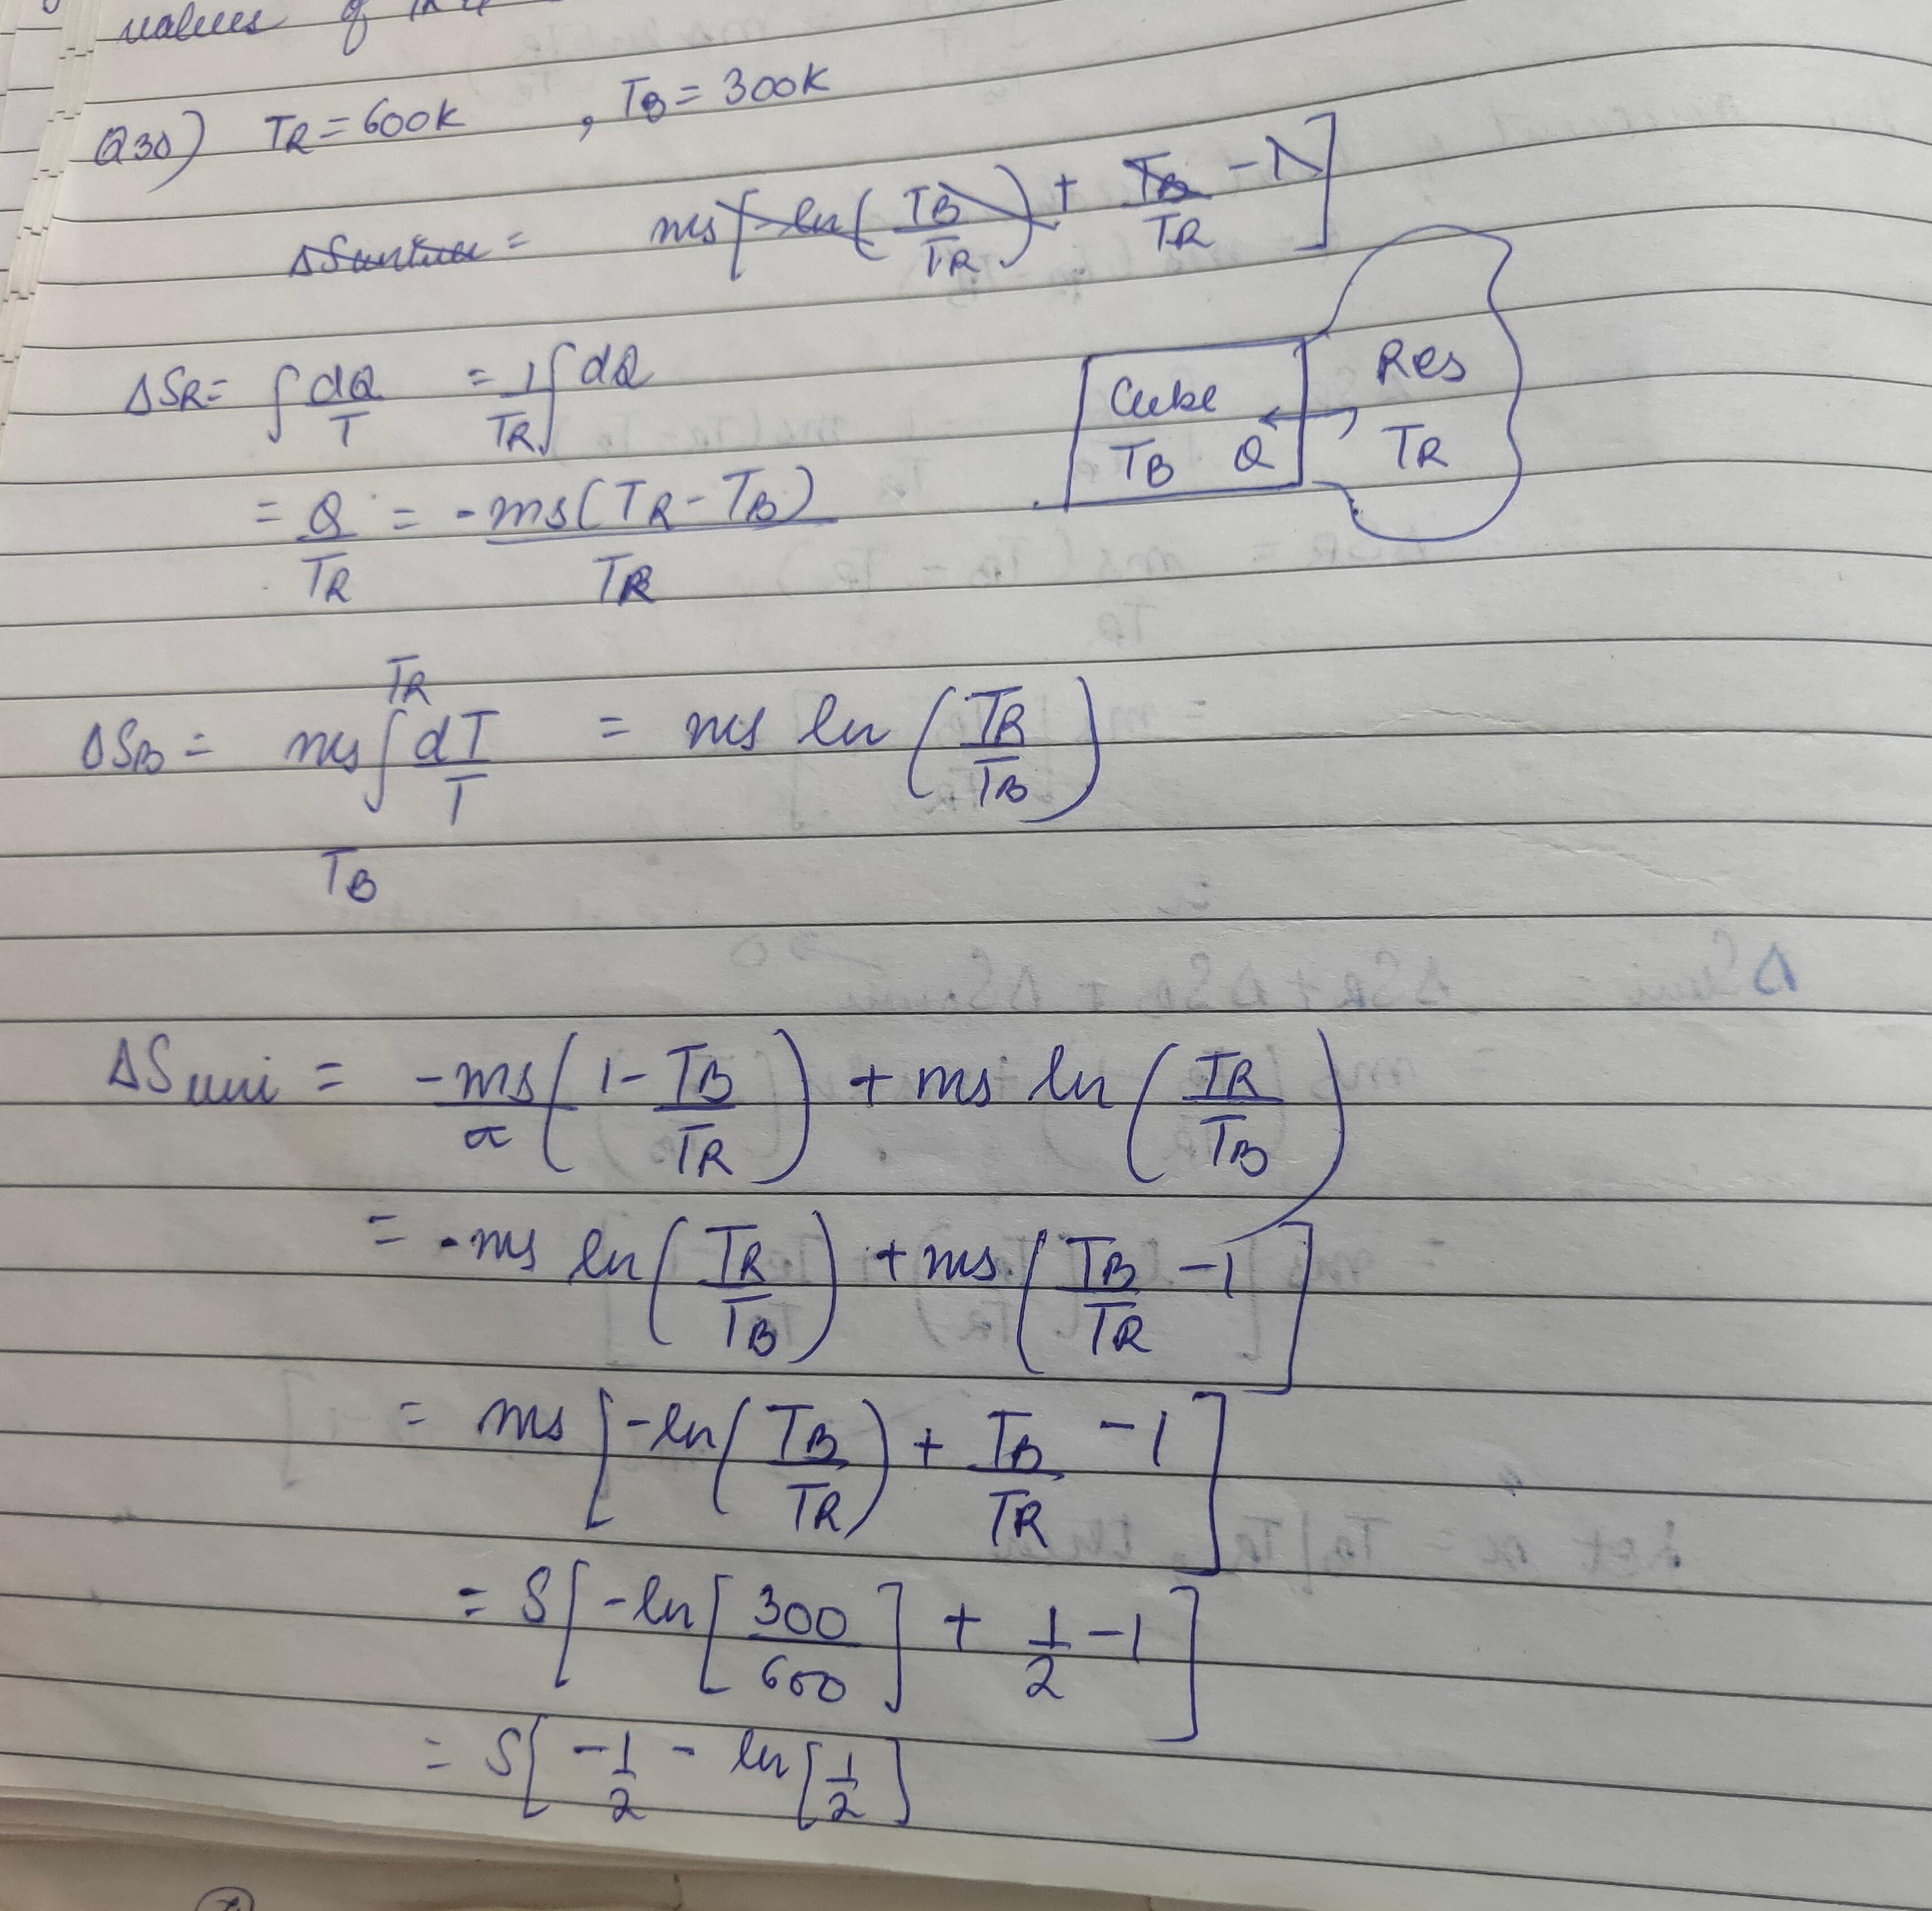 values of
Q30) TR = 600K , TB = 300K
ΔSuniv = ms[-ln(TB/TR) + TB/TR - 1]
ΔSR = ∫ dQ/T = 1/TR ∫ dQ
Cube Res
TB Q TR
= Q/TR = -ms(TR - TB)/TR
ΔSB = ms ∫_TB^TR dT/T = ms ln(TR/TB)
ΔSuni = -ms(1 - TB/TR) + ms ln(TR/TB)
= -ms ln(TR/TB) + ms(TB/TR - 1]
= ms[-ln(TB/TR) + TB/TR - 1]
= S[-ln[300/600] + 1/2 - 1]
= S[-1/2 - ln[1/2]